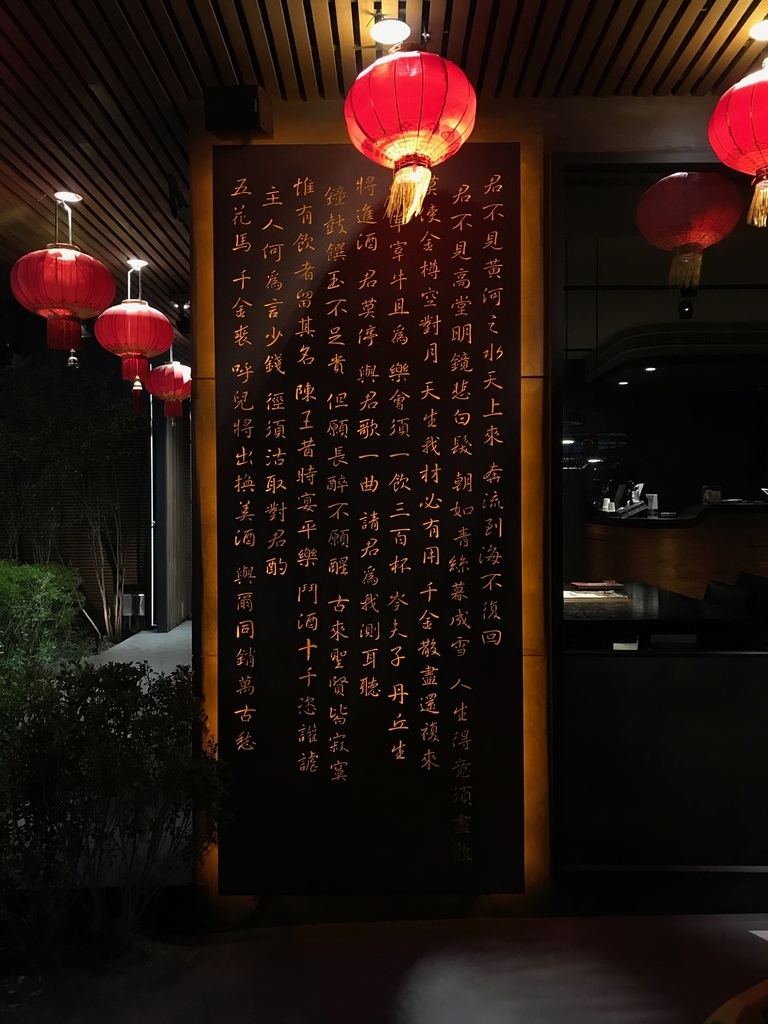 君不見黃河之水天上來 奔流到海不復回
君不見高堂明鏡悲白髮 朝如青絲暮成雪 人生得意須盡歡
使金樽空對月 天生我材必有用 千金散盡還複來
宰牛且爲樂 會須一飲三百杯 岑夫子 丹丘生
將進酒 君莫停 與君歌一曲 請君爲我測耳聽
鐘鼓饌玉不足貴 但願長醉不願醒 古來聖賢皆寂寞
惟有飲者留其名 陳王昔時宴平樂 鬥酒十千恣讙謔
主人何爲言少錢 徑須沽取對君酌
五花馬 千金裘 呼兒將出換美酒 與爾同銷萬古愁